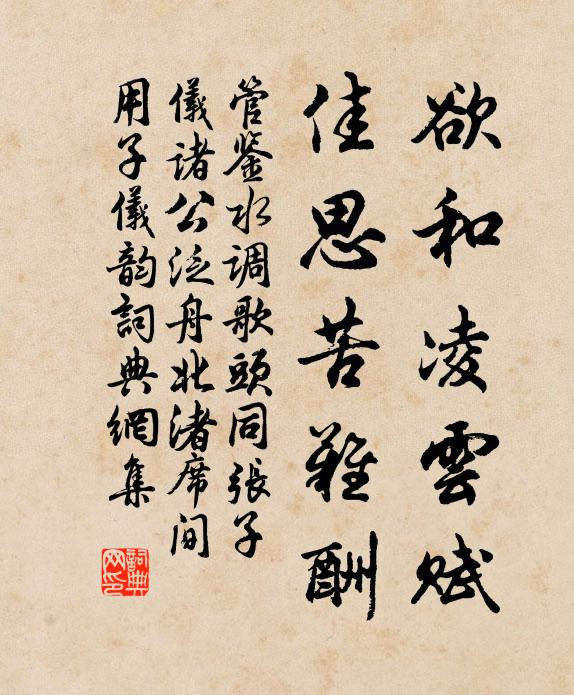 欲和凌雲赋
佳思苦難酬
管鉴水调歌頭同張子
儀诸公泛舟北渚席间
用子儀韵詞典網集
詞典网印